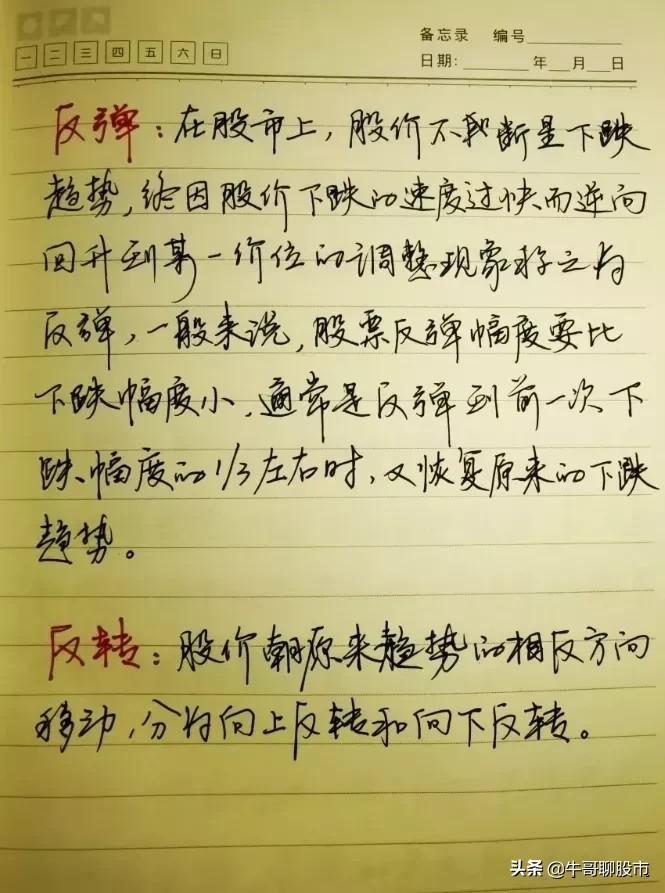 备忘录 编号
一 二 三 四 五 六 日
日期: 年 月 日
反弹：在股市上，股价不断呈下跌
趋势，终因股价下跌的速度过快而逆向
回升到某一价位的调整现象称之为
反弹，一般来说，股票反弹幅度要比
下跌幅度小，通常是反弹到前一次下
跌幅度的1/3左右时，又恢复原来的下跌
趋势。
反转：股价朝原来趋势的相反方向
移动，分为向上反转和向下反转。
头条 @牛哥聊股市